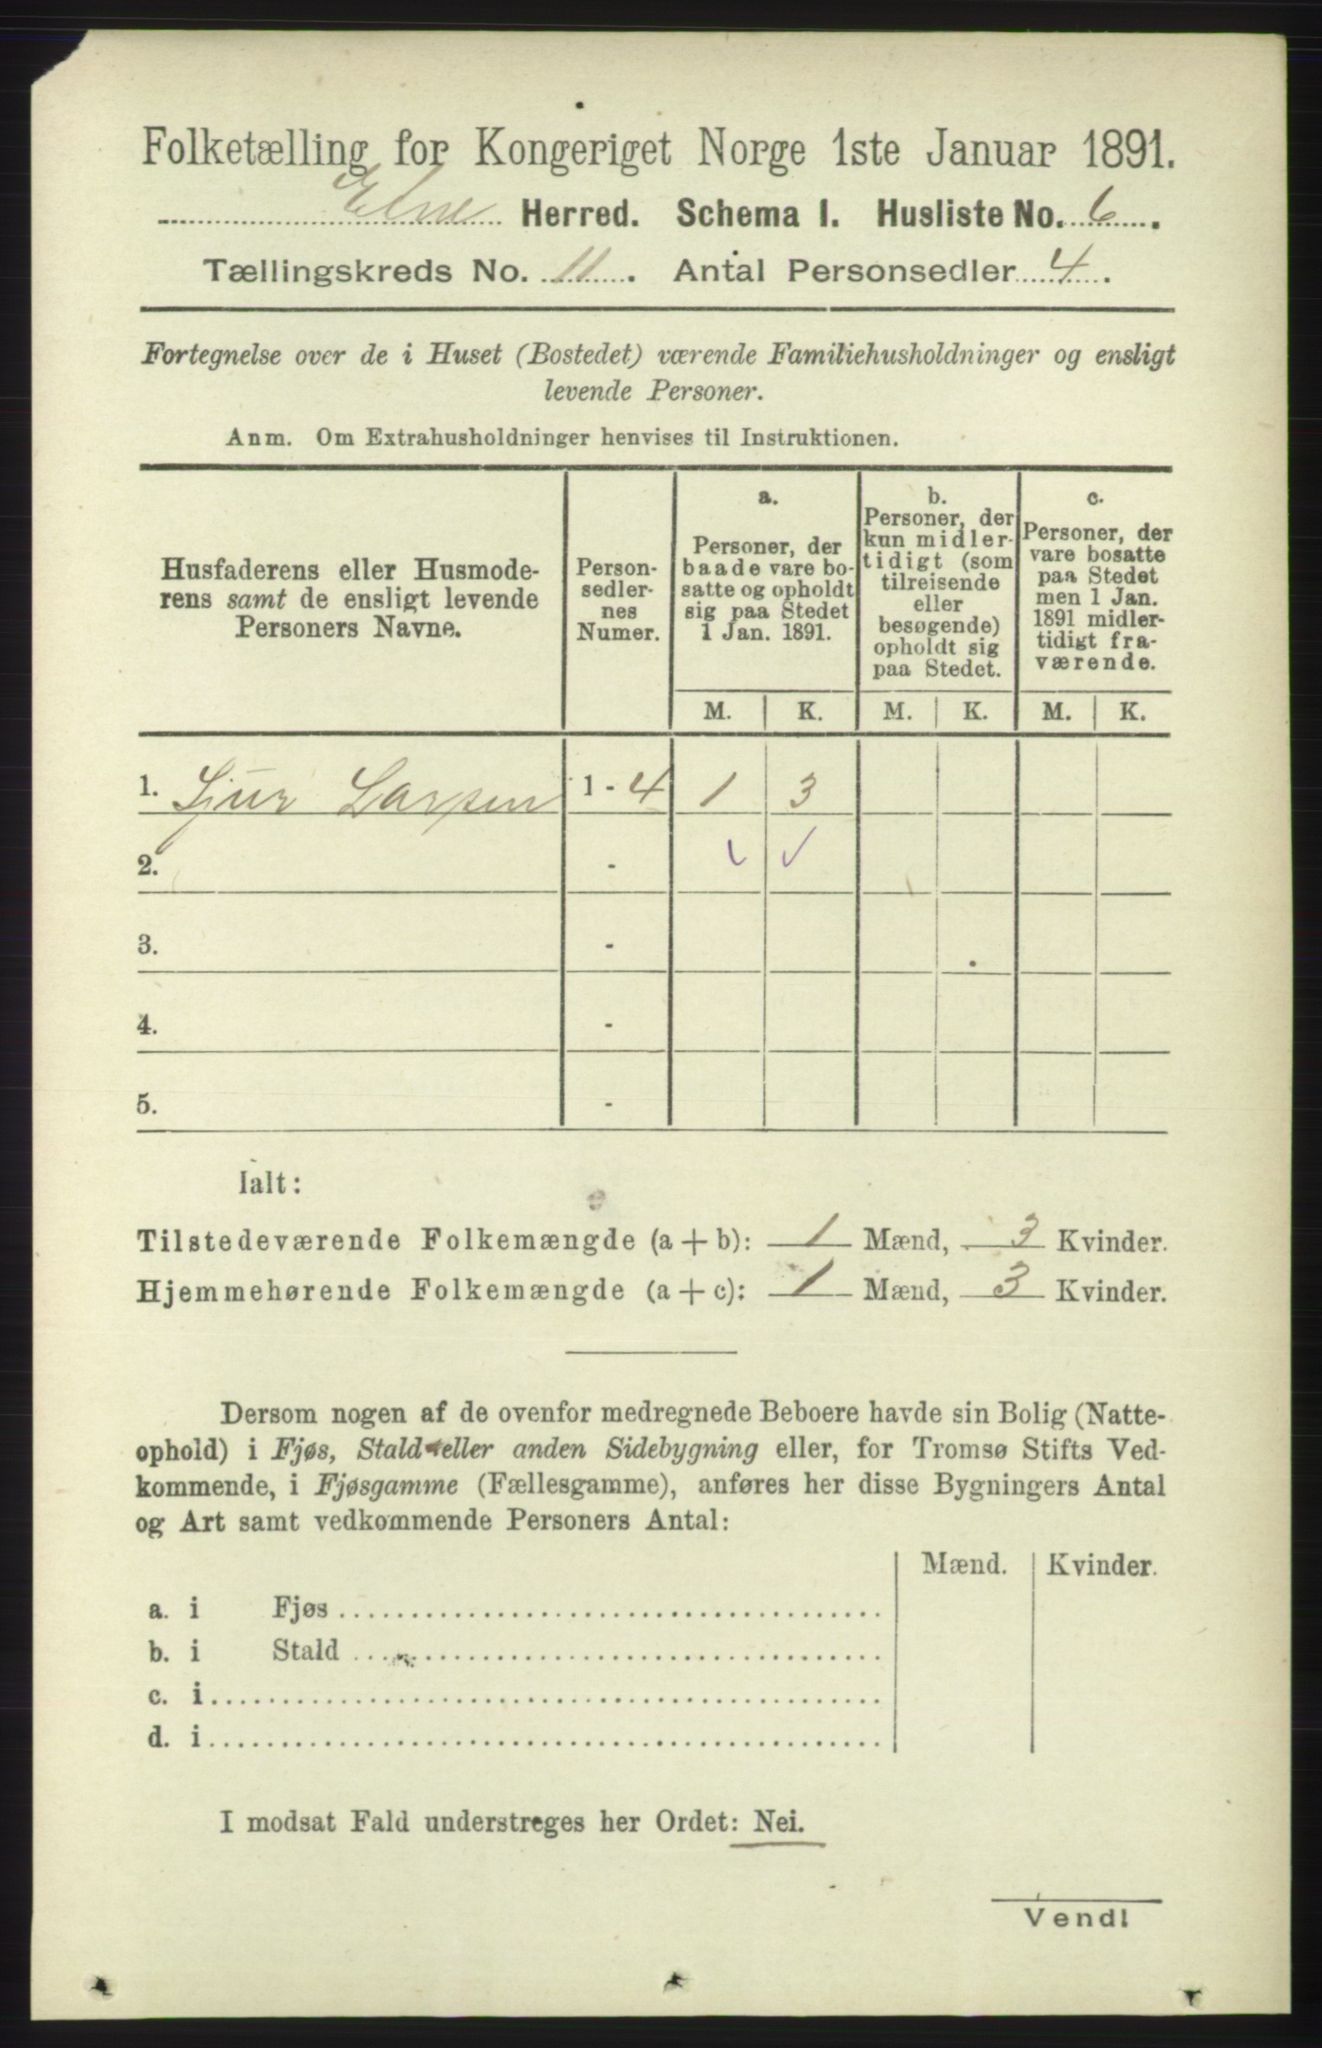 Folketælling for Kongeriget Norge 1ste Januar 1891.
Etne Herred. Schema I. Husliste No. 6.
Tællingskreds No. 11. Antal Personsedler 4.
Fortegnelse over de i Huset (Bostedet) værende Familiehusholdninger og ensligt
levende Personer.
Anm. Om Extrahusholdninger henvises til Instruktionen.
Husfaderens eller Husmode-
rens samt de ensligt levende
Personers Navne.
Person-
sedler-
nes
Numer.
a.
Personer, der
baade vare bo-
satte og opholdt
sig paa Stedet
1 Jan. 1891.
b.
Personer, der
kun midler-
tidigt (som
tilreisende
eller
besøgende)
opholdt sig
paa Stedet.
c.
Personer, der
vare bosatte
paa Stedet
men 1 Jan.
1891 midler-
tidigt fra-
værende.
M. K. M. K. M. K.
1. Sjur Larsen 1 - 4 1 3
2. -
3. -
4. -
5. -
Ialt:
Tilstedeværende Folkemængde (a + b): 1 Mænd, 3 Kvinder.
Hjemmehørende Folkemængde (a + c): 1 Mænd, 3 Kvinder.
Dersom nogen af de ovenfor medregnede Beboere havde sin Bolig (Natte-
ophold) i Fjøs, Stald eller anden Sidebygning eller, for Tromsø Stifts Ved-
kommende, i Fjøsgamme (Fællesgamme), anføres her disse Bygningers Antal
og Art samt vedkommende Personers Antal:
Mænd. Kvinder.
a. i Fjøs
b. i Stald
c. i
d. i
I modsat Fald understreges her Ordet: Nei.
Vend!